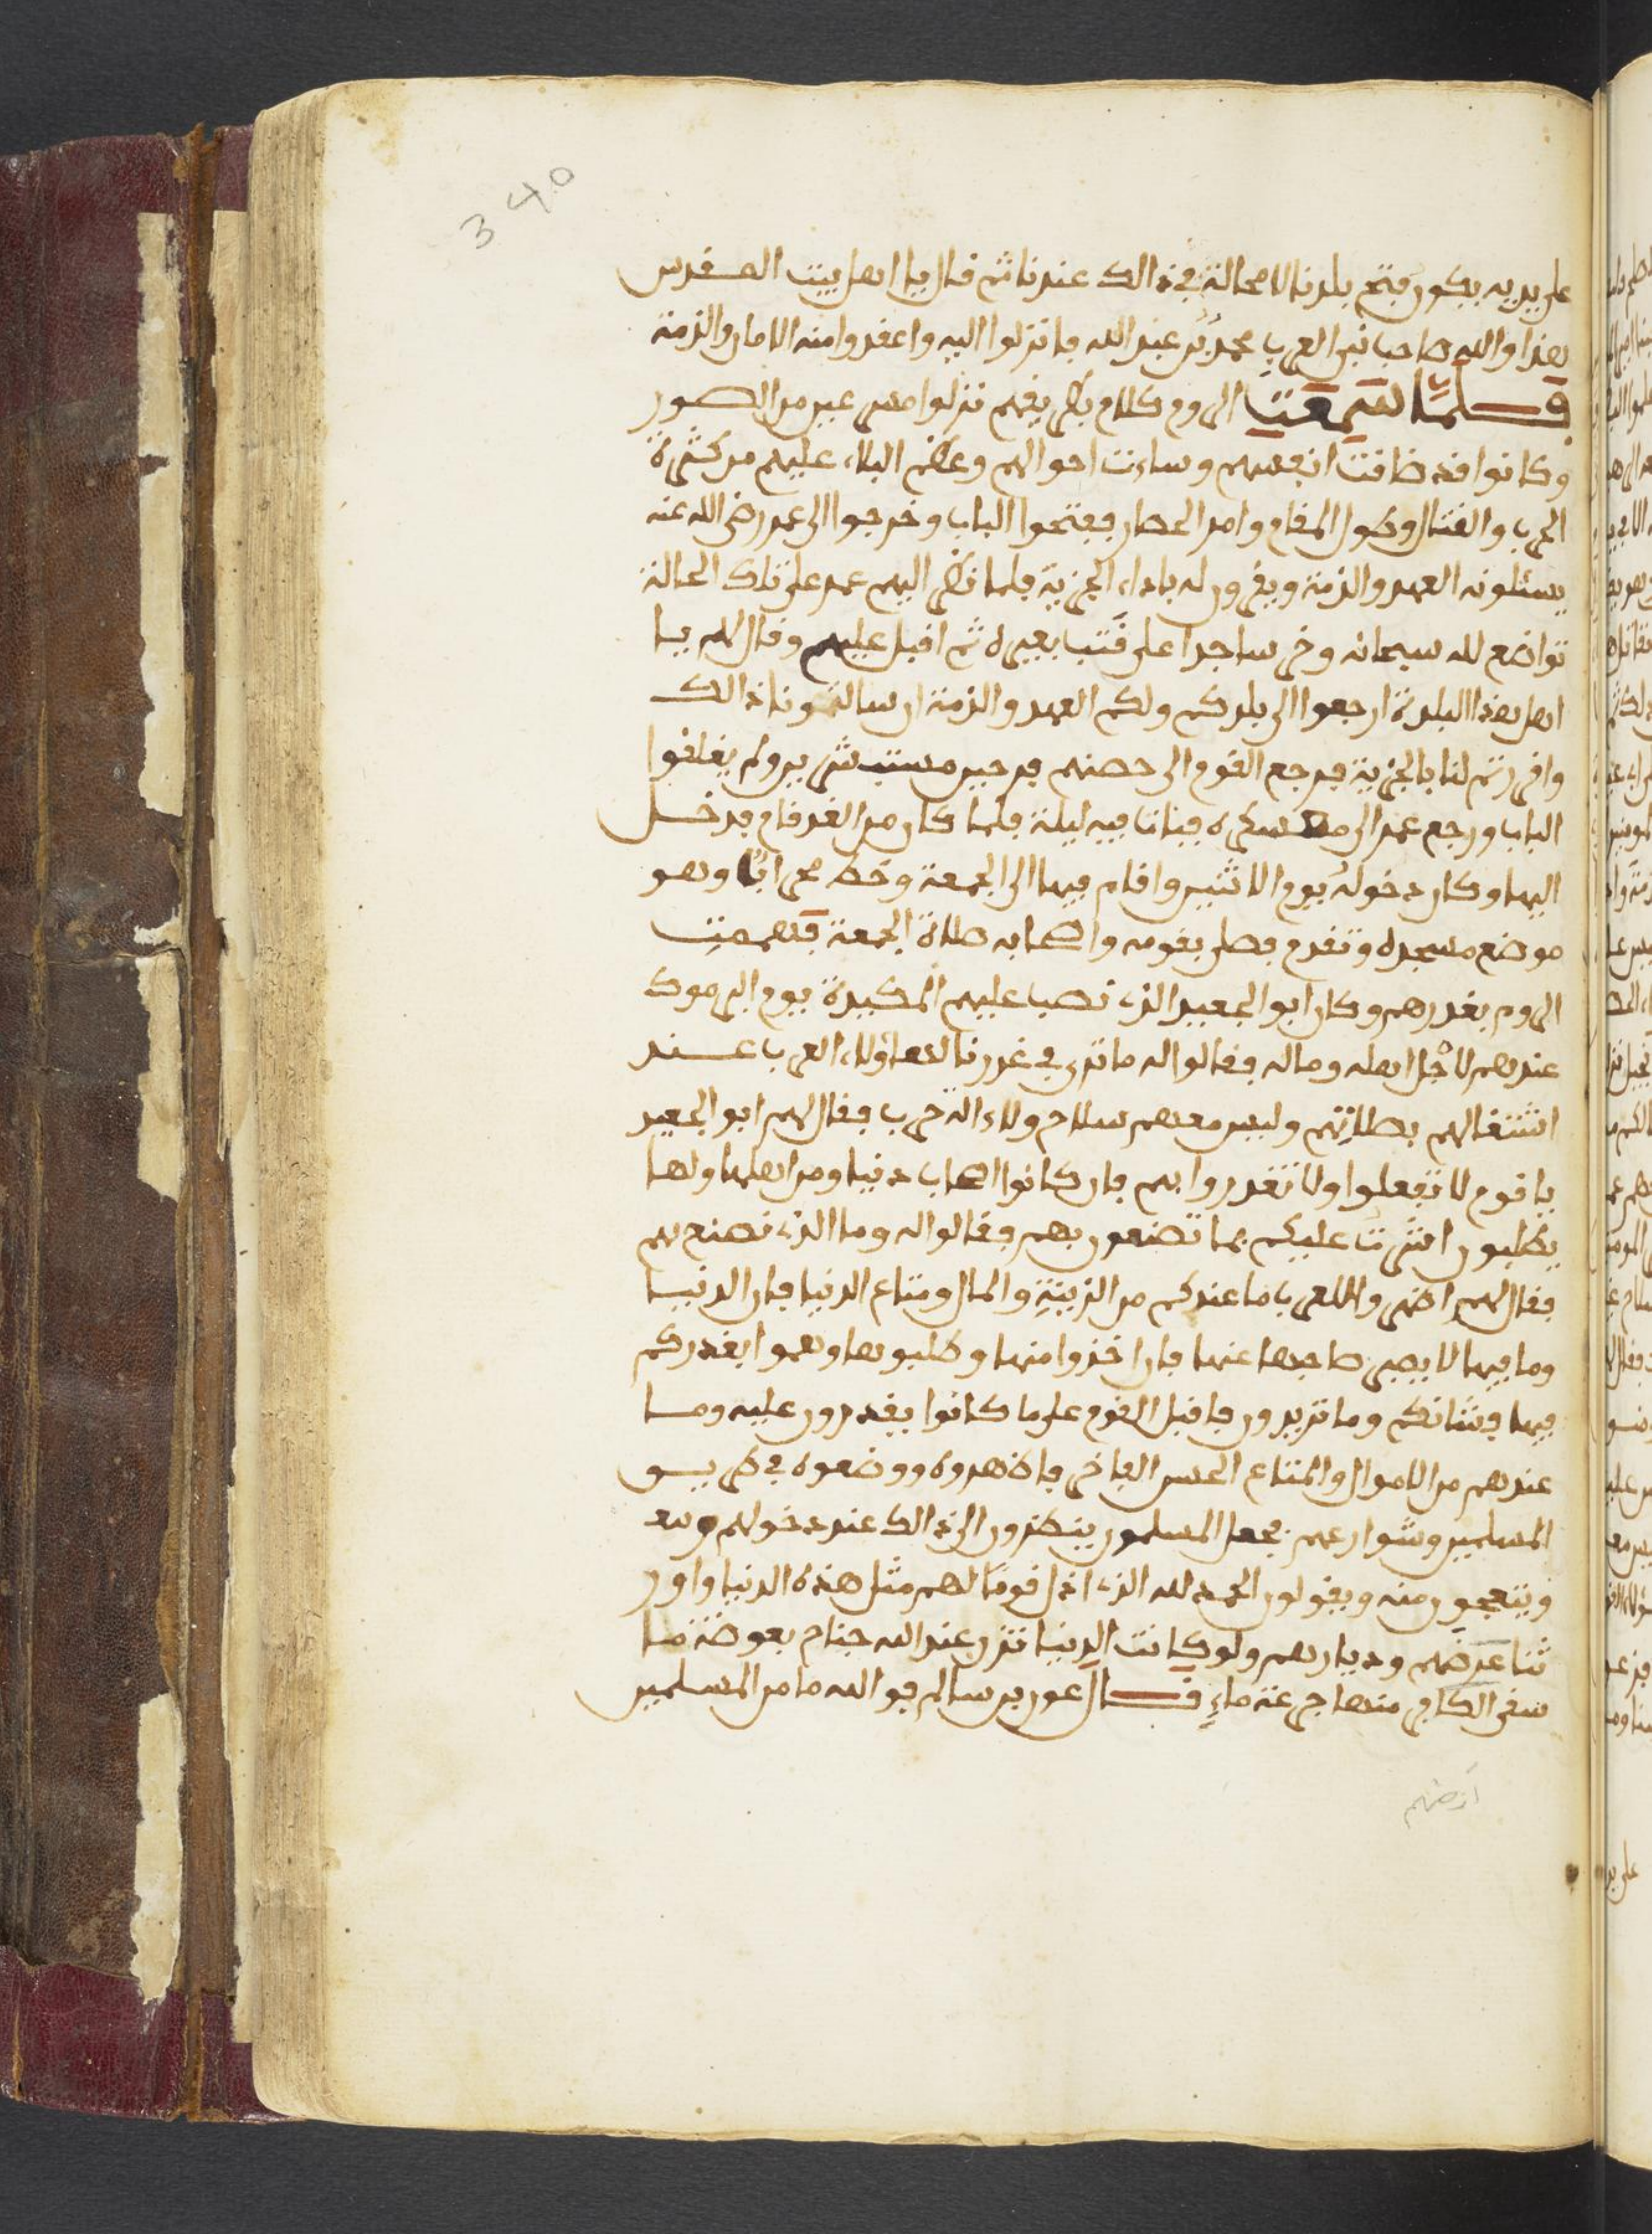 340
على يديه يكون فتح بلدنا لا محالة في ذالك عندنا ثم قال يا اهل بيت المقدس
هذا والله صاحب نبي العرب محمد بن عبد الله فانزلوا اليه واعقدوا منه الامان والذمة
فلما سمعت الروم كلام بطريقهم نزلوا مسرعين من السور
وكانوا قد ضاقت انفسهم وساءت احوالهم وعظم البلاء عليهم من كثرة
الحرب والقتال وطول المقام وامر الحصار ففتحوا الباب وخرجوا الى عمر رضي الله عنه
يسئلونه العهد والذمة ويقرون له باداء الجزية فلما نظر اليهم عمر على تلك الحالة
تواضع لله سبحانه وخر ساجدا على قتب بعيره ثم اقبل عليهم وقال لهم يا
اهل هذا البلدة ارجعوا الى بلدكم ولكم العهد والذمة ان سالتمونا ذالك
واقررتم لنا بالجزية فرجع القوم الى حصنهم فرحين مستبشرين ولم يغلقوا
الباب ورجع عمر الى معسكره فبات فيه ليلة فلما كان من الغد قام فدخل
اليها وكان دخوله يوم الاثنين واقام فيها الى الجمعة وخط محرابا وهو
موضع مسجده وتقدم فصلى بقومه واصحابه صلاة الجمعة فهمت
الروم بغدرهم وكان ابو الجعيد الذي نصب عليهم المكيدة يوم اليرموك
عندهم لاجل اهله وماله فقالوا له ما ترى في غدرنا لهؤلاء العرب عند
اشتغالهم بصلاتهم وليس معهم سلاح ولا الة حرب فقال لهم ابو الجعيد
يا قوم لا تفعلوا ولا تغدروا بهم فان كانوا اصحاب دنيا ومن اهلها ولها
يطلبون اشرت عليكم بما تصنعون بهم فقالوا له وما الذي نصنع بهم
فقال لهم اظهروا للعرب ما عندكم من الزينة والمال ومتاع الدنيا فان الدنيا
وما فيها لا يصبر صاحبها عنها فان اخذوا منها وطلبوها وهموا بغدركم
فيها فشانكم وما تريدون فاقبل القوم على ما كانوا يقدرون عليه وما
عندهم من الاموال والمتاع الحسن الفاخر فاظهروه ووضعوه في طريق
المسلمين وشوارعهم فجعل المسلمون ينظرون الى ذالك عند دخولهم
ويتعجبون منه ويقولون الحمد لله الذي اذل قوما لهم مثل هذه الدنيا واور
ثنا عرضهم وديارهم ولو كانت الدنيا تزن عند الله جناح بعوضة ما
سقى الكافر منها جرعة ماء قال عون بن سالم فوالله ما من المسلمين
ارضهم